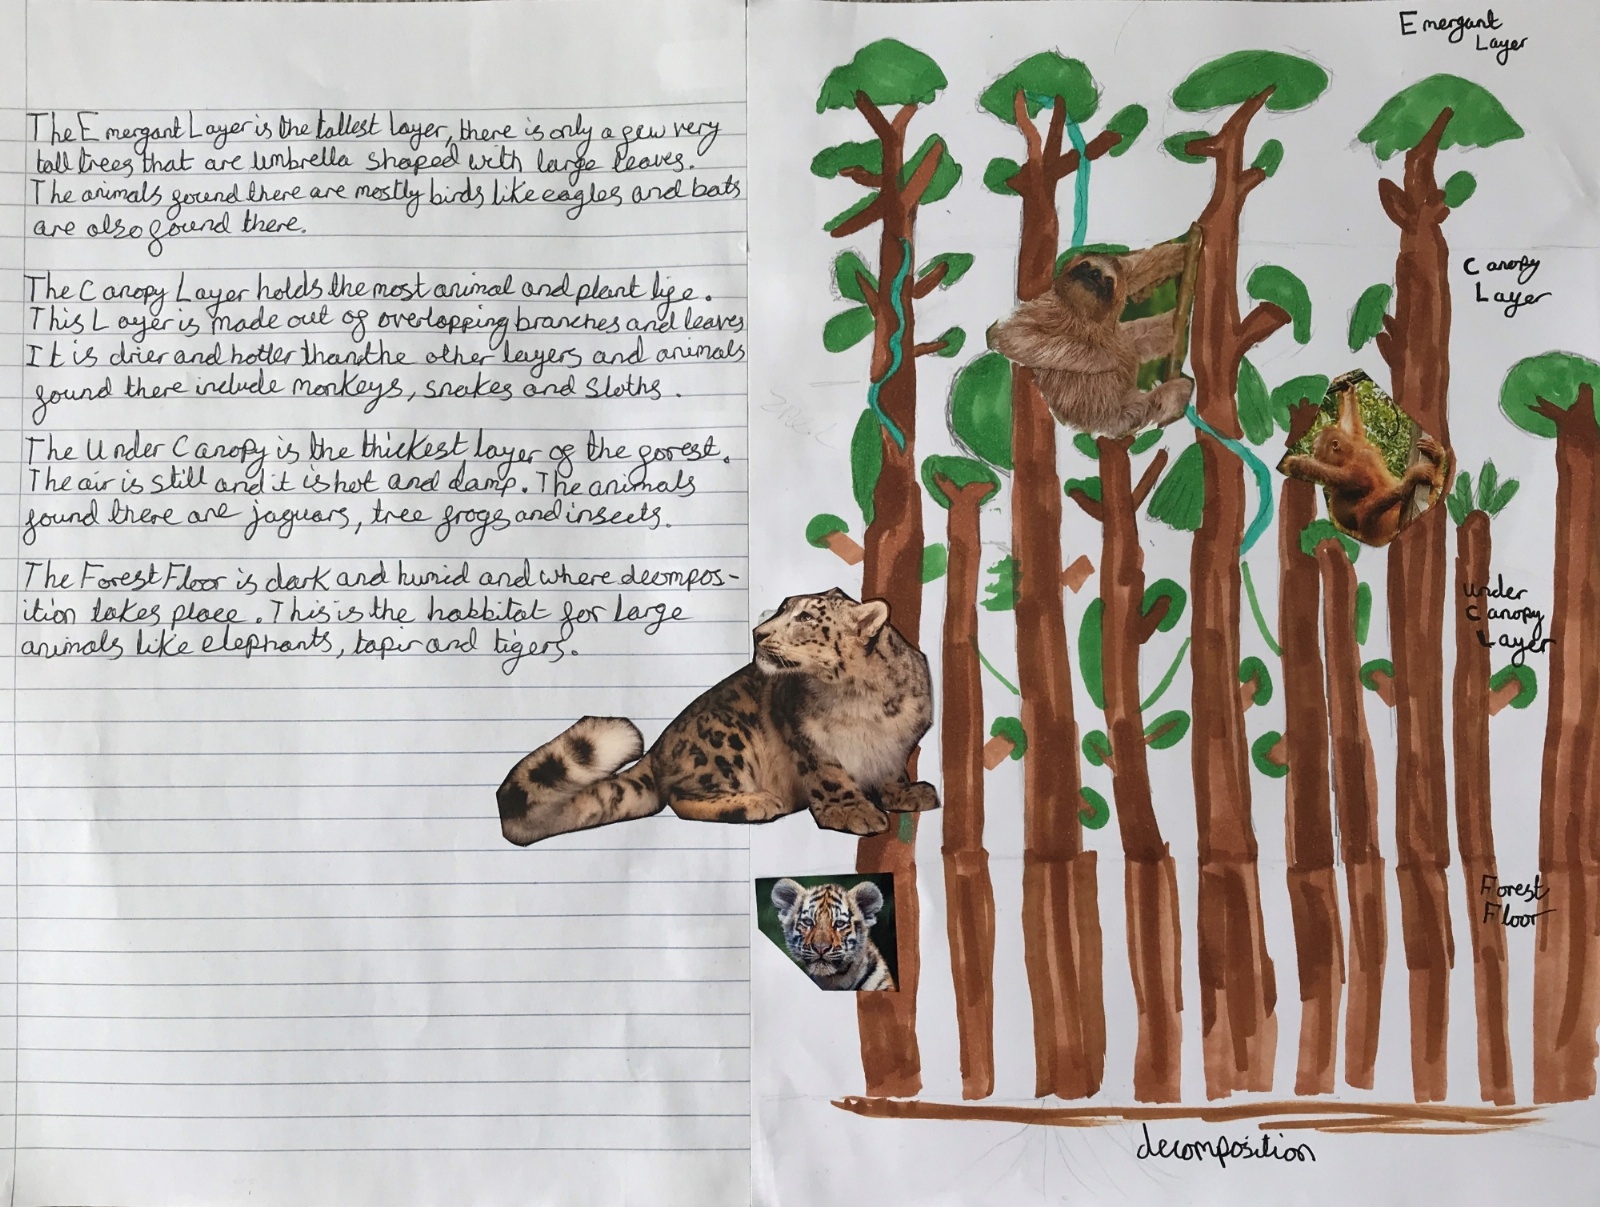 The Emergant Layer is the tallest layer, there is only a few very
tall trees that are umbrella shaped with large leaves.
The animals found there are mostly birds like eagles and bats
are also found there.
The Canopy Layer holds the most animal and plant life.
This Layer is made out of overlapping branches and leaves
It is drier and hotter than the other layers and animals
found there include monkeys, snakes and sloths.
The Under Canopy is the thickest layer of the forest.
The air is still and it is hot and damp. The animals
found there are jaguars, tree frogs and insects.
The Forest Floor is dark and humid and where decompos-
ition takes place. This is the habbitat for large
animals like elephants, tapir and tigers.
Emergant
Layer
Canopy
Layer
Under
Canopy
Layer
Forest
Floor
decomposition